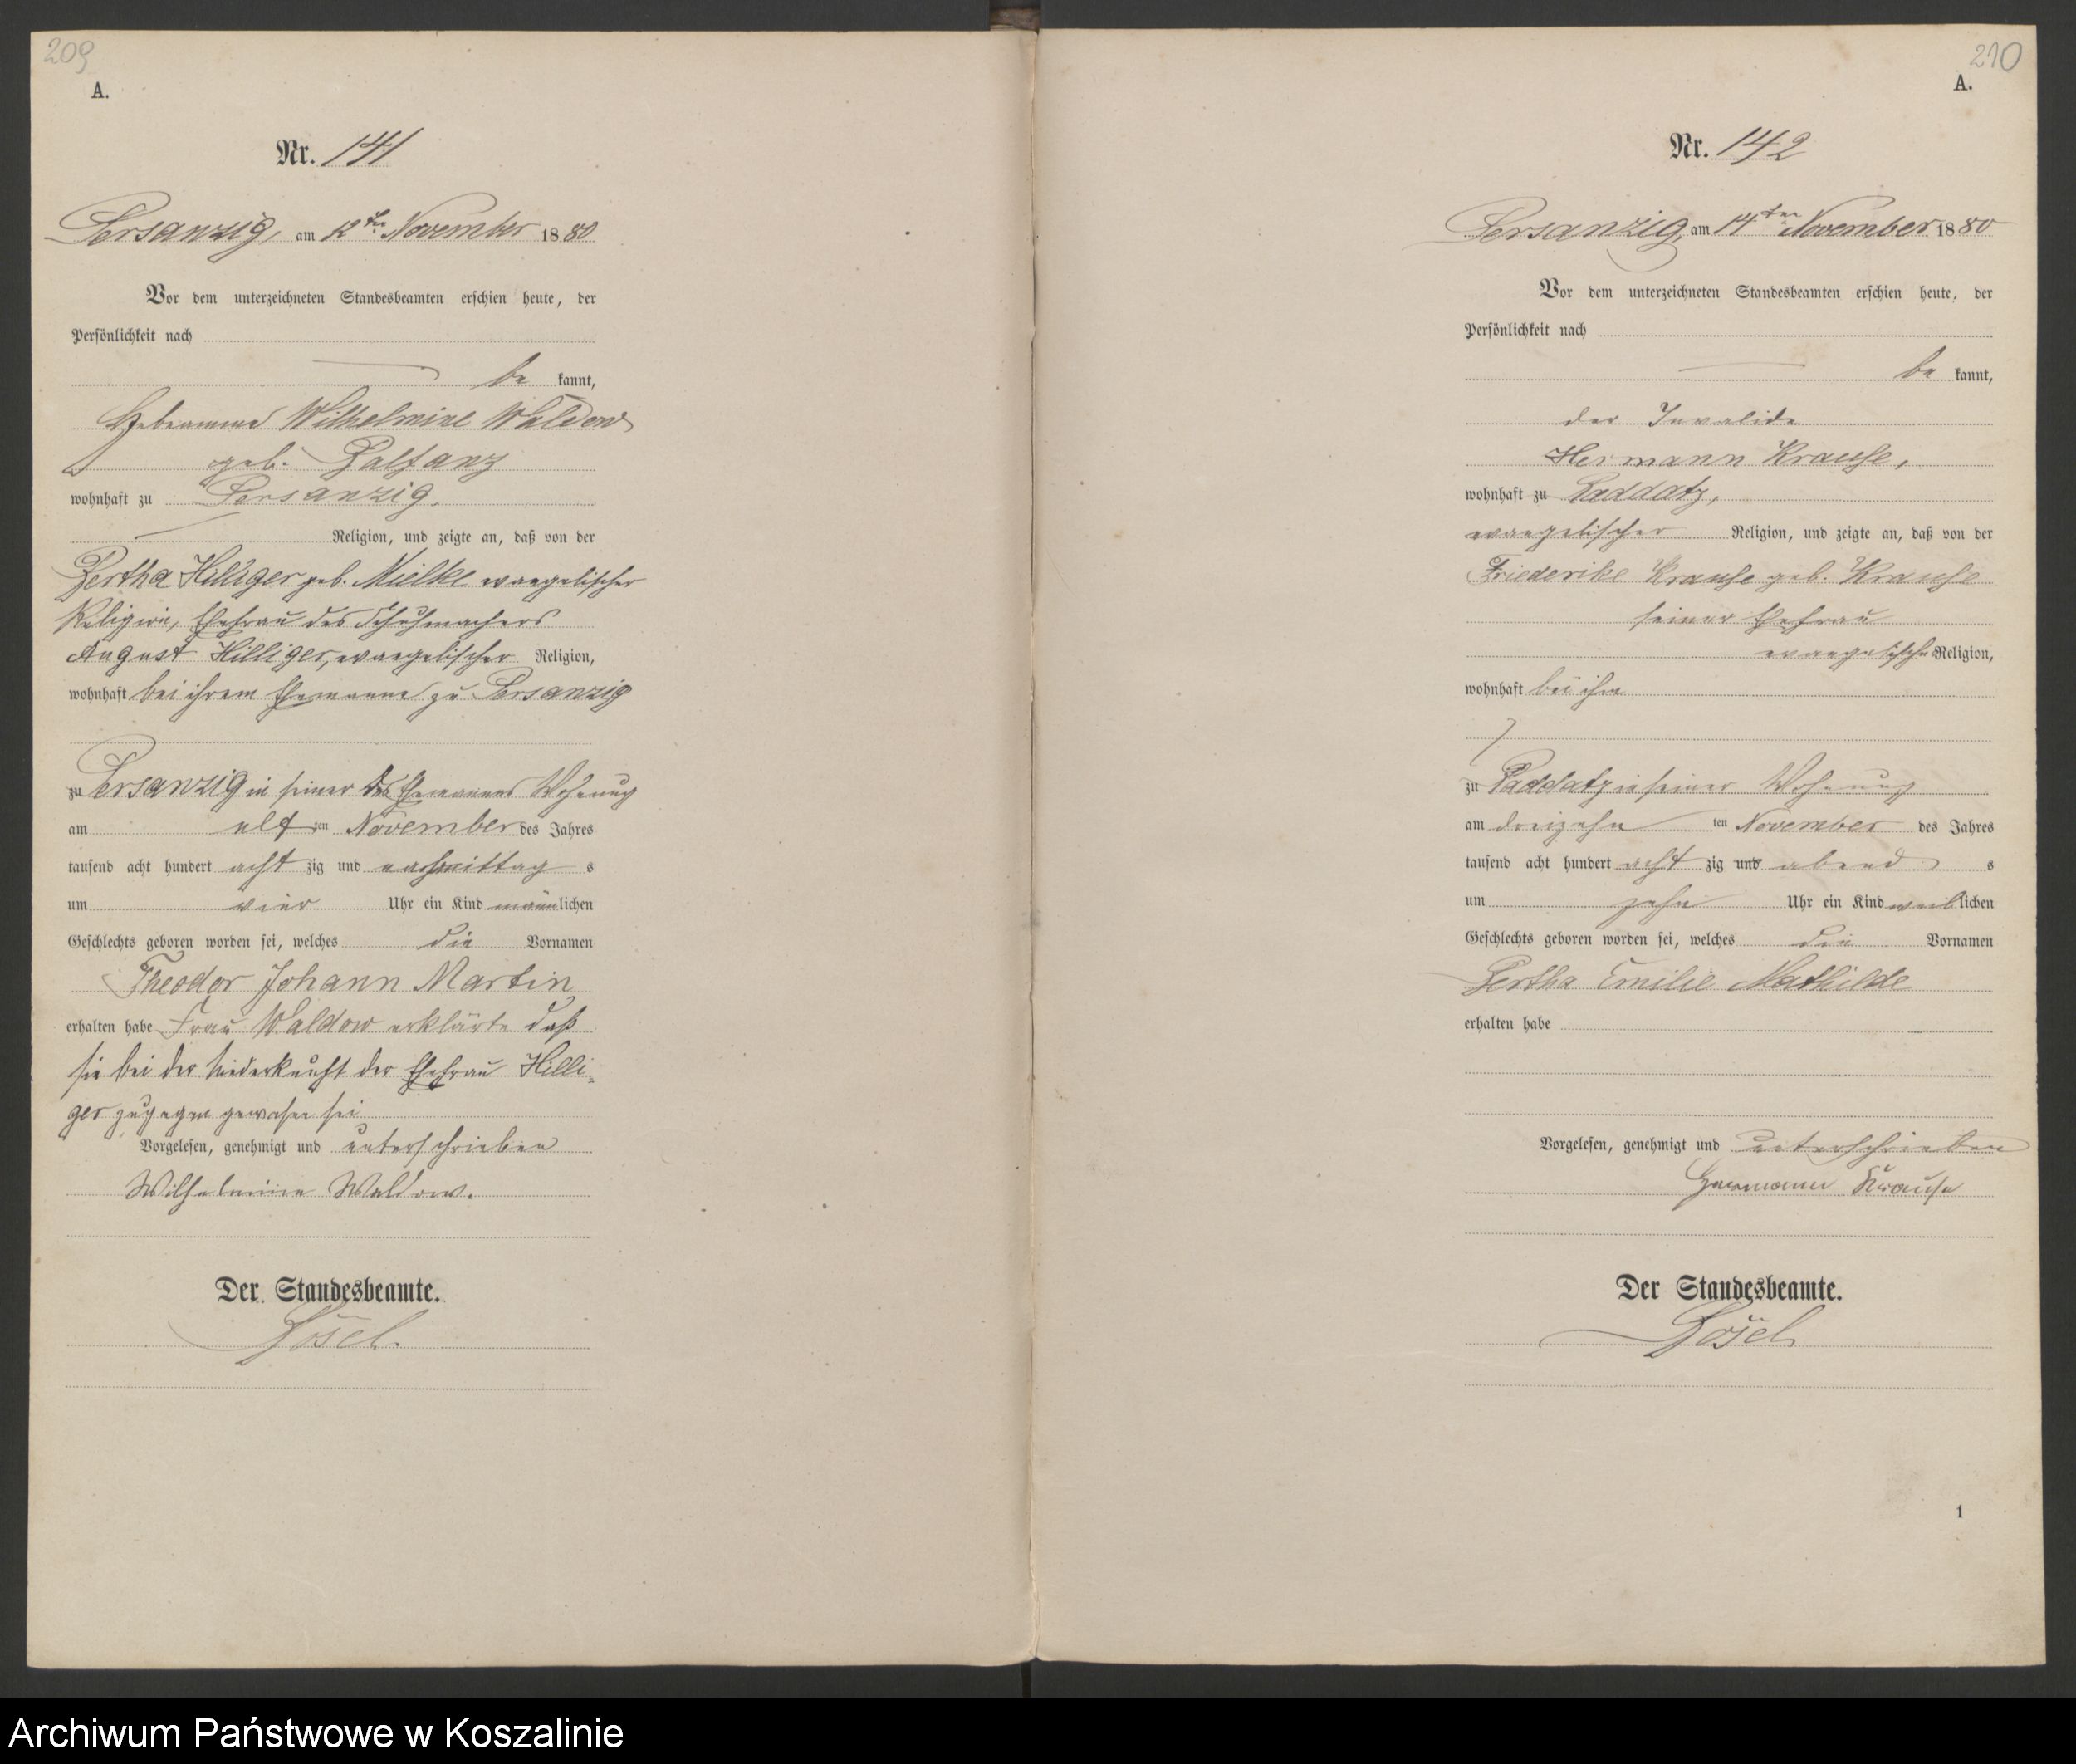 209
A.
Nr. 141
Persanzig, am 12ten November 1880
Vor dem unterzeichneten Standesbeamten erschien heute, der
Persönlichkeit nach
be kannt,
Hebeamme Wilhelmine Waldow
geb. Falfanz
wohnhaft zu Persanzig.
Religion, und zeigte an, daß von der
Bertha Hilliger geb. Mielke evangelischer
Religion, Ehefrau des Schuhmachers
August Hilliger, evangelischer Religion,
wohnhaft bei ihrem Ehemanne zu Persanzig
zu Persanzig in seiner des Ehemannes Wohnung
am elf ten November des Jahres
tausend acht hundert acht zig und nachmittag s
um vier Uhr ein Kind männlichen
Geschlechts geboren worden sei, welches die Vornamen
Theodor Johann Martin
erhalten habe Frau Waldow erklärte daß
sie bei der Niederkunft der Ehefrau Hilli-
ger zugegen gewesen sei
Vorgelesen, genehmigt und unterschrieben
Wilhelmine Waldow.
Der Standesbeamte.
210
A.
Nr. 142
Persanzig, am 14ten November 1880
Vor dem unterzeichneten Standesbeamten erschien heute, der
Persönlichkeit nach
be kannt,
der Invalide
Hermann Krause,
wohnhaft zu Raddatz,
evangelischer Religion, und zeigte an, daß von der
Friederike Krause geb. Krause
seiner Ehefrau
evangelischer Religion,
wohnhaft bei ihm
zu Raddatz in seiner Wohnung
am dreizehn ten November des Jahres
tausend acht hundert acht zig und abend s
um zehn Uhr ein Kind weiblichen
Geschlechts geboren worden sei, welches die Vornamen
Bertha Emilie Mathilde
erhalten habe
Vorgelesen, genehmigt und unterschrieben
Hermann Krause
Der Standesbeamte.
1
Archiwum Państwowe w Koszalinie